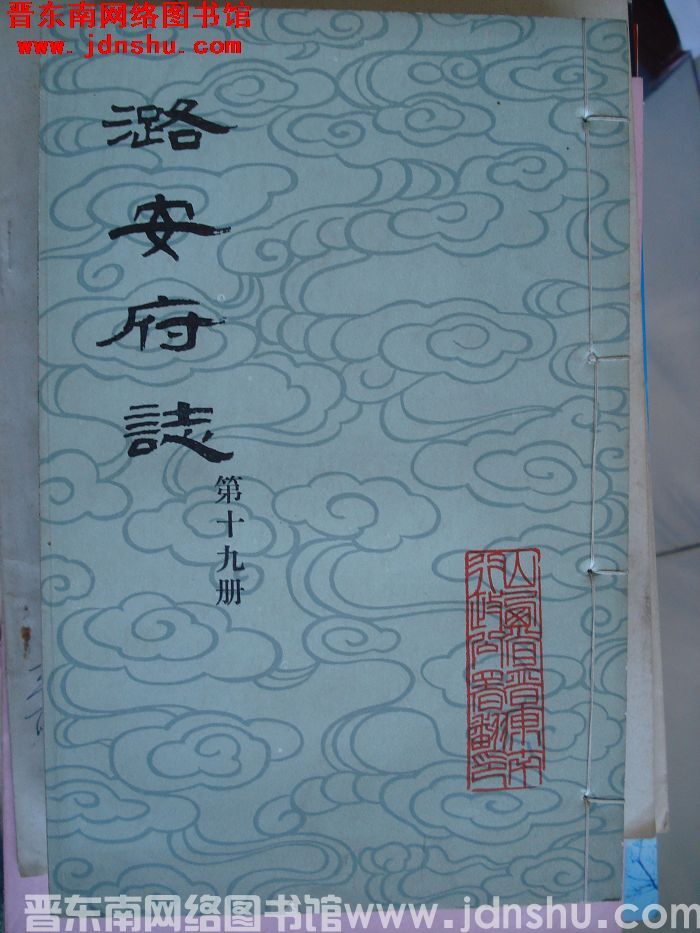 晋东南网络图书馆
www.jdnshu.com
潞安府誌
第十九册
山西省晋东南
行政公署翻印
晋东南网络图书馆 www.jdnshu.com